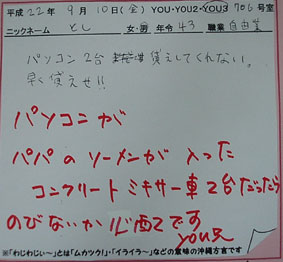 平成 22年 9月 10日(金) YOU・YOU2・YOU3 706号室
ニックネーム とし 女・男 年令 43 職業 自由業
パソコン2台 貸えしてくれない。
早く貸えせ!!
パソコンが
パパのソーメンが 入った
コンクリートミキサー車2台だったら
のびないか心配です
YOU兄
※「わじわじぃ〜」とは「ムカツク!」・「イライラ〜」などの意味の沖縄方言です